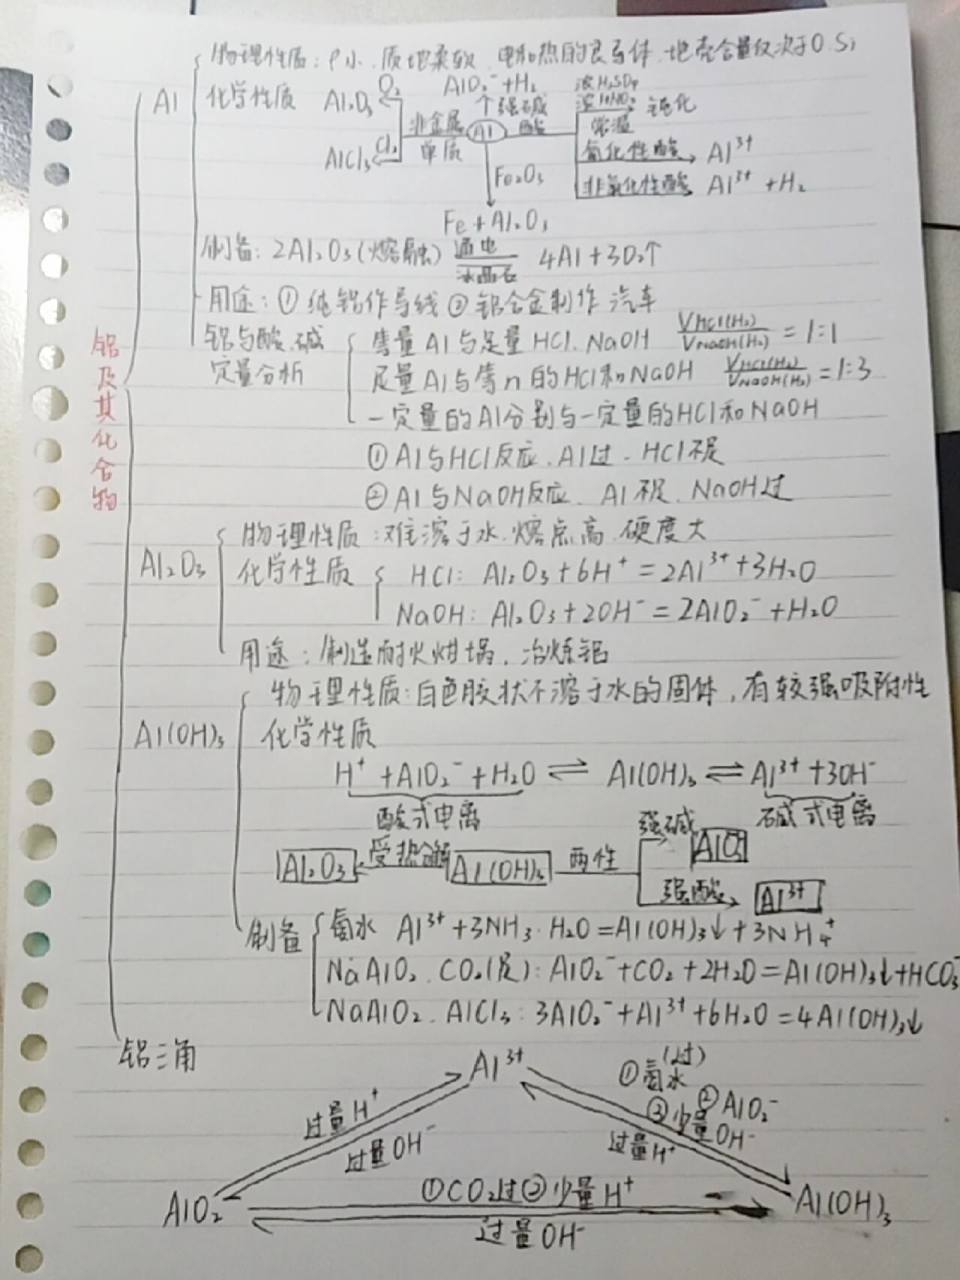 铝及其化合物
Al
物理性质：ρ小、质地柔软、电和热的良导体、地壳含量仅次于O、Si
化学性质
Al₂O₃ O₂ AlO₂⁻+H₂ 浓H₂SO₄
浓HNO₃ 钝化
常温
非金属单质 Al 强碱 酸
AlCl₃ Cl₂ 氧化性酸 Al³⁺
Fe₂O₃ 非氧化性酸 Al³⁺+H₂
Fe+Al₂O₃
制备：2Al₂O₃(熔融) 通电 冰晶石 4Al+3O₂↑
用途：①纯铝作导线②铝合金制作汽车
铝与酸、碱定量分析
等量Al与足量HCl、NaOH VHCl(H₂)/VNaOH(H₂)=1:1
足量Al与等n的HCl和NaOH VHCl(H₂)/VNaOH(H₂)=1:3
一定量的Al分别与一定量的HCl和NaOH
①Al与HCl反应、Al过、HCl不足
②Al与NaOH反应、Al不足、NaOH过
Al₂O₃
物理性质：难溶于水、熔点高、硬度大
化学性质
HCl：Al₂O₃+6H⁺=2Al³⁺+3H₂O
NaOH：Al₂O₃+2OH⁻=2AlO₂⁻+H₂O
用途：制造耐火坩埚、冶炼铝
Al(OH)₃
物理性质：白色胶状不溶于水的固体，有较强吸附性
化学性质
H⁺+AlO₂⁻+H₂O⇌Al(OH)₃⇌Al³⁺+3OH⁻
酸式电离 碱式电离
Al₂O₃ 受热分解 Al(OH)₃ 两性 强碱 AlO₂⁻
强酸 Al³⁺
制备
氨水 Al³⁺+3NH₃·H₂O=Al(OH)₃↓+3NH₄⁺
NaAlO₂、CO₂(足)：AlO₂⁻+CO₂+2H₂O=Al(OH)₃↓+HCO₃⁻
NaAlO₂、AlCl₃：3AlO₂⁻+Al³⁺+6H₂O=4Al(OH)₃↓
铝三角
Al³⁺
①氨水(过)
②AlO₂⁻
③少量OH⁻
过量H⁺
过量H⁺
过量OH⁻
AlO₂ ①CO₂过②少量H⁺ Al(OH)₃
过量OH⁻